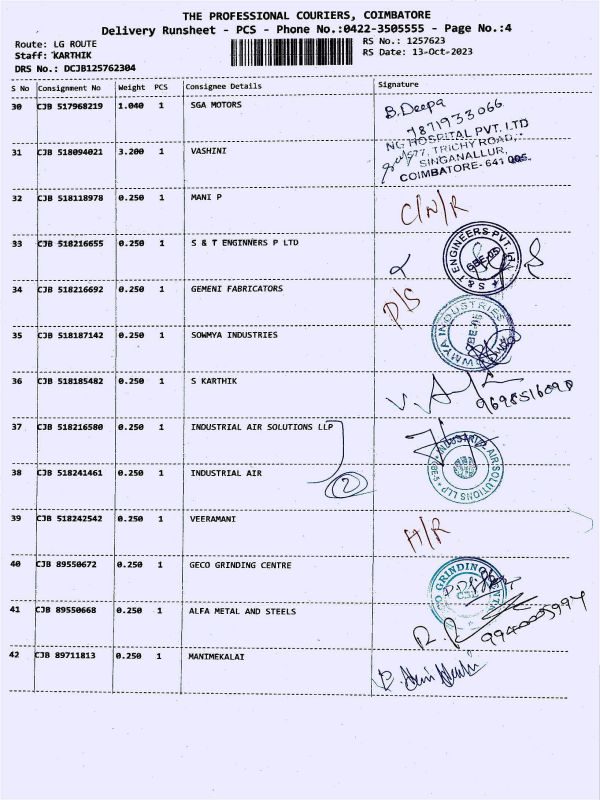 THE PROFESSIONAL COURIERS, COIMBATORE
Delivery Runsheet - PCS - Phone No.:0422-3505555 - Page No.:4
Route: LG ROUTE
RS No.: 1257623
Staff: KARTHIK
RS Date: 13-Oct-2023
DRS No.: DCJB125762304
S No Consignment No Weight PCS Consignee Details Signature
30 CJB 517968219 1.040 1 SGA MOTORS
B.Deepa
7871933066
31 CJB 518094021 3.200 1 VASHINI
NG HOSPITAL PVT. LTD
577, TRICHY ROAD,
SINGANALLUR,
COIMBATORE- 641 005.
32 CJB 518118978 0.250 1 MANI P
C/N/R
33 CJB 518216655 0.250 1 S & T ENGINNERS P LTD
S & T ENGINEERS PVT. LTD
CBE-05
34 CJB 518216692 0.250 1 GEMENI FABRICATORS
D/S
35 CJB 518187142 0.250 1 SOWMYA INDUSTRIES
SOWMYA INDUSTRIES
CBE-05
36 CJB 518185482 0.250 1 S KARTHIK
37 CJB 518216580 0.250 1 INDUSTRIAL AIR SOLUTIONS LLP
INDUSTRIAL AIR SOLUTIONS LLP
38 CJB 518241461 0.250 1 INDUSTRIAL AIR
2
39 CJB 518242542 0.250 1 VEERAMANI
H/R
40 CJB 89550672 0.250 1 GECO GRINDING CENTRE
GRINDING
41 CJB 89550668 0.250 1 ALFA METAL AND STEELS
9940005994
42 CJB 89711813 0.250 1 MANIMEKALAI